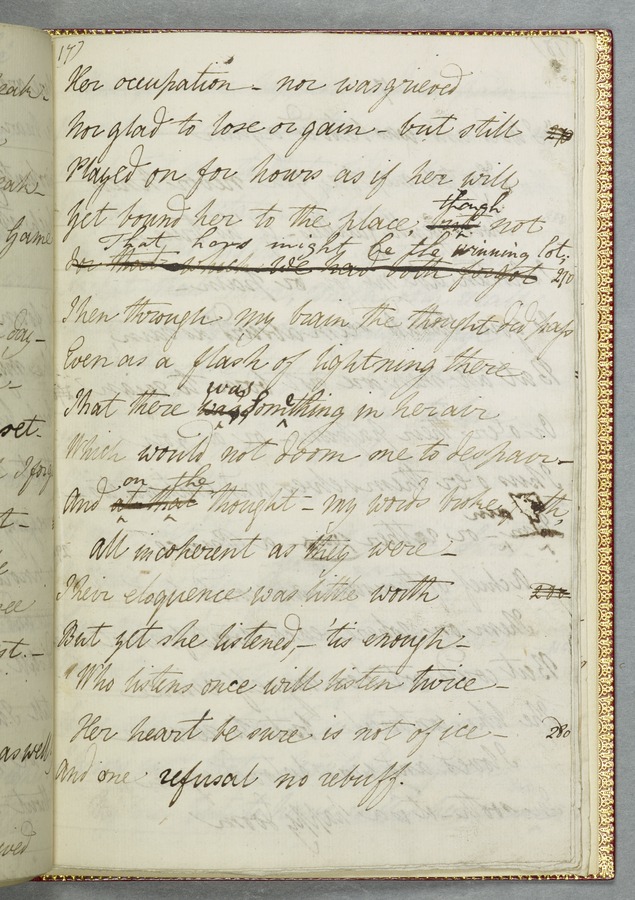 17)
Her occupation – nor was grieved
Nor glad to lose or gain – but still
Played on for hours as if her will
Yet bound her to the place, though but not
That hers might be the winning lot;
In that which we had both forgot 270
Then through my brain the thought did pass
Even as a flash of lightning there
That there was something in her air
Which would not doom me to despair –
on the
And at that thought – my words broke forth
all incoherent as they were –
Their eloquence was little worth
But yet she listened, – 'tis enough –
"Who listens once will listen twice –
Her heart be sure is not of ice – 280
And one refusal no rebuff.